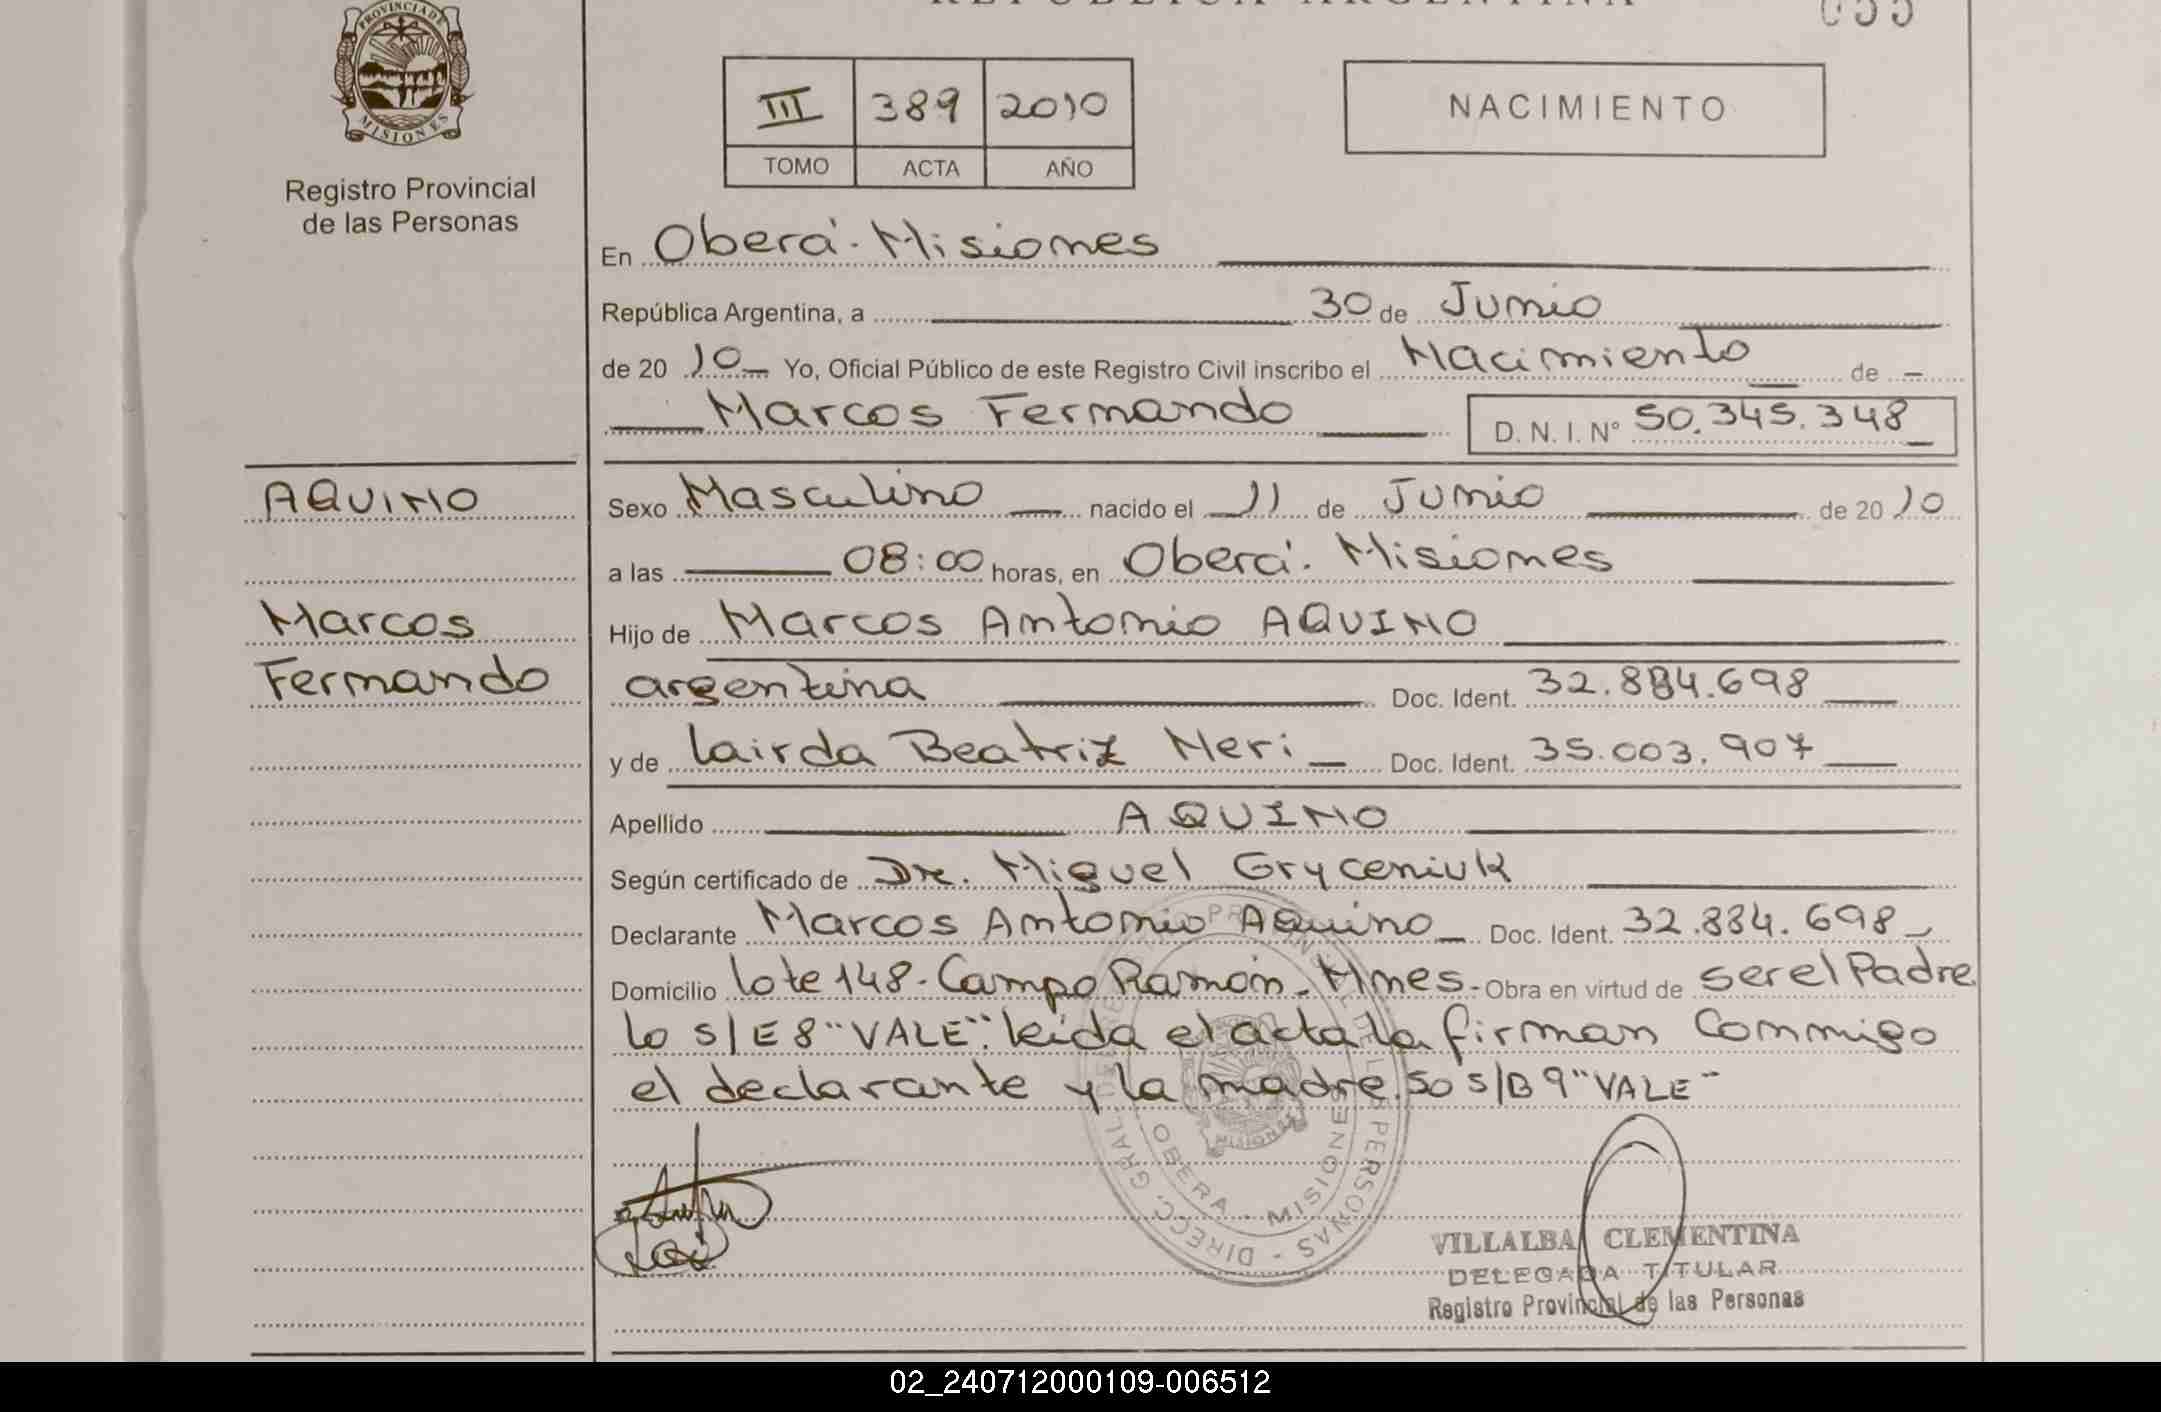 PROVINCIA DE
MISIONES
REPUBLICA ARGENTINA
055
Registro Provincial
de las Personas
III 389 2010
TOMO ACTA AÑO
NACIMIENTO
En Oberá - Misiones
República Argentina, a 30 de Junio
de 20 10 Yo, Oficial Público de este Registro Civil inscribo el Nacimiento de
Marcos Fernando D. N. I. Nº 50.345.348
AQUINO
Marcos
Fernando
Sexo Masculino nacido el 11 de Junio de 20 10
a las 08:00 horas, en Oberá. Misiones
Hijo de Marcos Antonio AQUINO
argentina Doc. Ident. 32.884.698
y de Lairda Beatriz Neri Doc. Ident. 35.003.907
Apellido AQUINO
Según certificado de Dr. Miguel Gryceniuk
Declarante Marcos Antonio Aquino Doc. Ident. 32.884.698
Domicilio lote 148 - Campo Ramón - Mnes. Obra en virtud de ser el Padre
lo s/E 8 "VALE". leída el acta la firman Conmigo
el declarante y la madre. so s/B 9 "VALE"
DIRECC. GRAL. DE PERSONAS
OBERA - MISIONES
MISIONES
VILLALBA CLEMENTINA
DELEGADA TITULAR
Registro Provincial de las Personas
02_240712000109-006512